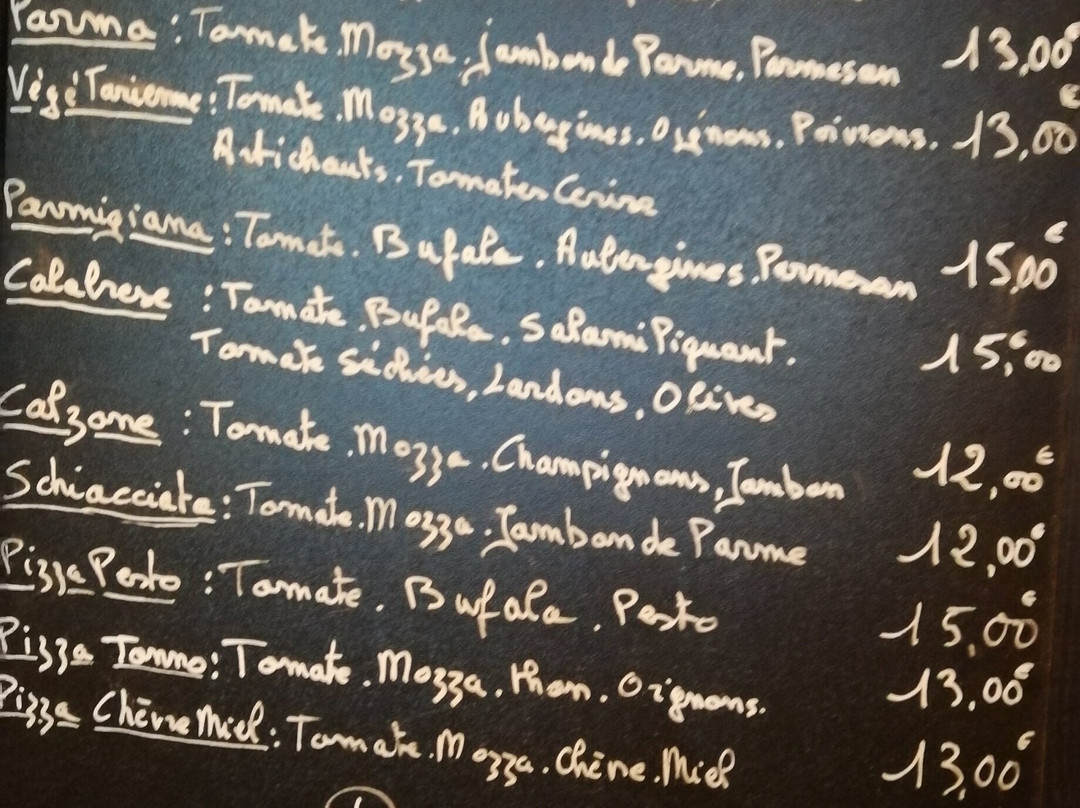 Parma : Tomate.Mozza.jambon de Parme.Parmesan 13,00€
VégéTarienne : Tomate.Mozza.Aubergines.Oignons.Poivrons. 13,00€
Artichauts.Tomates Cerise
Parmigiana : Tomate.Bufala.Aubergines.Parmesan 15,00€
Calabrese : Tomate.Bufala.Salami Piquant. 15,00€
Tomate séchées, Lardons, Olives
Calzone : Tomate.Mozza.Champignons, Jambon 12,00€
Schiacciata : Tomate.Mozza.Jambon de Parme 12,00€
Pizza Pesto : Tomate.Bufala.Pesto 15,00€
Pizza Tonno : Tomate.Mozza.thon.Oignons. 13,00€
Pizza Chèvre Miel : Tomate.Mozza.Chèvre.Miel 13,00€